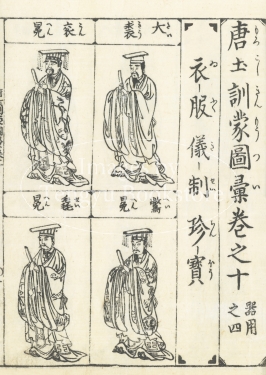 唐土訓蒙圖彙巻之十
器用
之四
衣-服儀制珍-寶
大裘
袞冕
鷩冕
毳冕